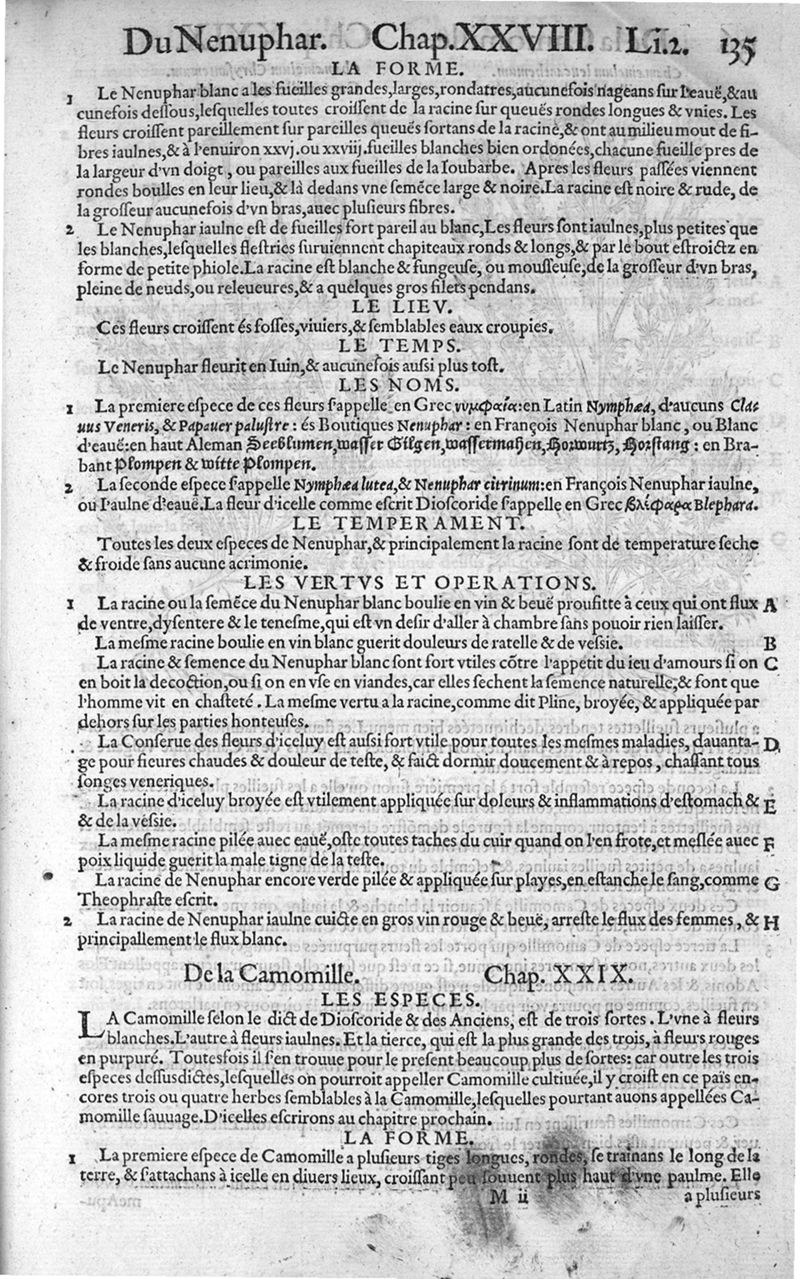 Du Nenuphar. Chap.XXVIII. Li.2. 135
LA FORME.
1 Le Nenuphar blanc a les fueilles grandes,larges,rondatres,aucunefois nageans sur l'eauë,&au
cunefois dessous,lesquelles toutes croissent de la racine sur queuës rondes longues & vnies. Les
fleurs croissent pareillement sur pareilles queuës sortans de la racine,& ont au milieu mout de fi-
bres iaulnes,& à l'enuiron xxvj.ou xxviij.fueilles blanches bien ordonées,chacune fueille pres de
la largeur d'vn doigt, ou pareilles aux fueilles de la Ioubarbe. Apres les fleurs passées viennent
rondes boulles en leur lieu,& là dedans vne semẽce large & noire.La racine est noire & rude, de
la grosseur aucunefois d'vn bras,auec plusieurs fibres.
2 Le Nenuphar iaulne est de fueilles fort pareil au blanc,Les fleurs sont iaulnes,plus petites que
les blanches,lesquelles flestries suruiennent chapiteaux ronds & longs,& par le bout estroictz en
forme de petite phiole.La racine est blanche & fungeuse, ou mousseuse,de la grosseur d'vn bras,
pleine de neuds,ou releueures,& a quelques gros filets pendans.
LE LIEV.
Ces fleurs croissent és fosses,viuiers,& semblables eaux croupies.
LE TEMPS.
Le Nenuphar fleurit en Iuin,& aucunefois aussi plus tost.
LES NOMS.
1 La premiere espece de ces fleurs s'appelle en Grec νυμφαία:en Latin Nymphæa, d'aucuns Clat
uus Veneris, & Papauer palustre: és Boutiques Nenuphar: en François Nenuphar blanc, ou Blanc
d'eauë:en haut Aleman Seeblumen,wasser Gilgen,wassermahen,Horwurtz,Horstang: en Bra-
bant Plompen & witte Plompen.
2 La seconde espece s'appelle Nymphæa lutea,& Nenuphar citrinum:en François Nenuphar iaulne,
ou I'aulne d'eauë.La fleur d'icelle comme escrit Dioscoride s'appelle en Grec βλέφαρα Blephara.
LE TEMPERAMENT.
Toutes les deux especes de Nenuphar,& principalement la racine sont de temperature seche
& froide sans aucune acrimonie.
LES VERTVS ET OPERATIONS.
1 La racine ou la semẽce du Nenuphar blanc boulie en vin & beuë proufitte à ceux qui ont flux A
de ventre,dysentere & le tenesme,qui est vn desir d'aller à chambre sans pouoir rien laisser.
La mesme racine boulie en vin blanc guerit douleurs de ratelle & de vessie. B
La racine & semence du Nenuphar blanc sont fort vtiles cõtre l'appetit du ieu d'amours si on C
en boit la decoction,ou si on en vse en viandes,car elles sechent la semence naturelle,& font que
l'homme vit en chasteté. La mesme vertu a la racine,comme dit Pline, broyée, & appliquée par
dehors sur les parties honteuses.
La Conserue des fleurs d'iceluy est aussi fort vtile pour toutes les mesmes maladies, dauanta- D
ge pour fieures chaudes & douleur de teste, & faict dormir doucement & à repos, chassant tous
songes veneriques.
La racine d'iceluy broyée est vtilement appliquée sur doleurs & inflammations d'estomach & E
& de la vessie.
La mesme racine pilée auec eauë,oste toutes taches du cuir quand on l'en frote,et meslée auec F
poix liquide guerit la male tigne de la teste.
La racine de Nenuphar encore verde pilée & appliquée sur playes,en estanche le sang,comme G
Theophraste escrit.
2 La racine de Nenuphar iaulne cuicte en gros vin rouge & beuë, arreste le flux des femmes, & H
principallement le flux blanc.
De la Camomille. Chap. XXIX.
LES ESPECES.
LA Camomille selon le dict de Dioscoride & des Anciens, est de trois sortes. L'vne à fleurs
blanches.L'autre à fleurs iaulnes. Et la tierce, qui est la plus grande des trois, à fleurs rouges
en purpuré. Toutesfois il s'en trouue pour le present beaucoup plus de sortes: car outre les trois
especes dessusdictes,lesquelles on pourroit appeller Camomille cultiuée,il y croist en ce païs en-
cores trois ou quatre herbes semblables à la Camomille,lesquelles pourtant auons appellées Ca-
momille sauuage.D'icelles escrirons au chapitre prochain.
LA FORME.
1 La premiere espece de Camomille a plusieurs tiges longues, rondes, se trainans le long de la
terre, & s'attachans à icelle en diuers lieux, croissant peu souuent plus haut d'vne paulme. Elle
M ii a plusieurs